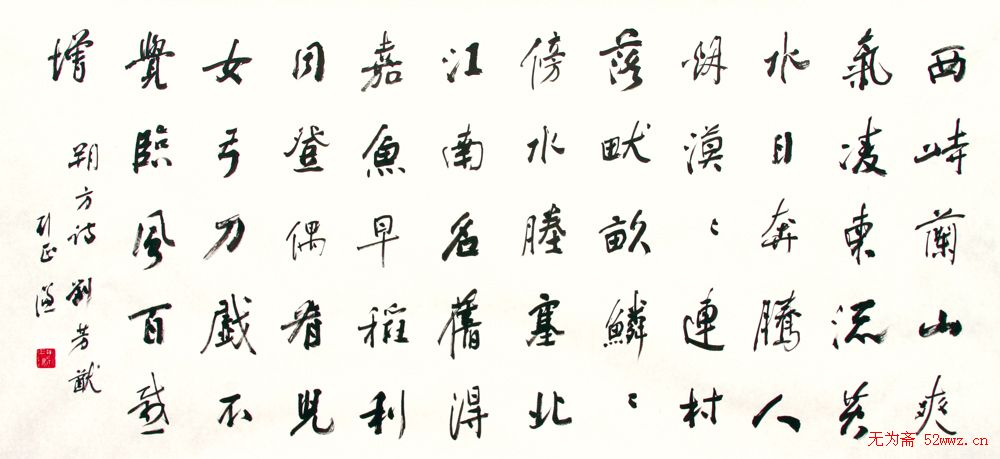 西峙蘭山爽
氣凌東流黃
水日奔騰人
烟漠〻連村
落畎畝鱗〻
傍水塍塞北
江南名舊得
嘉魚早稻利
同登偶看兒
女弓刀戲不
覺臨風百感
增
朔方詩 劉芳猷
刘正谦
无为斋 52wwz.cn